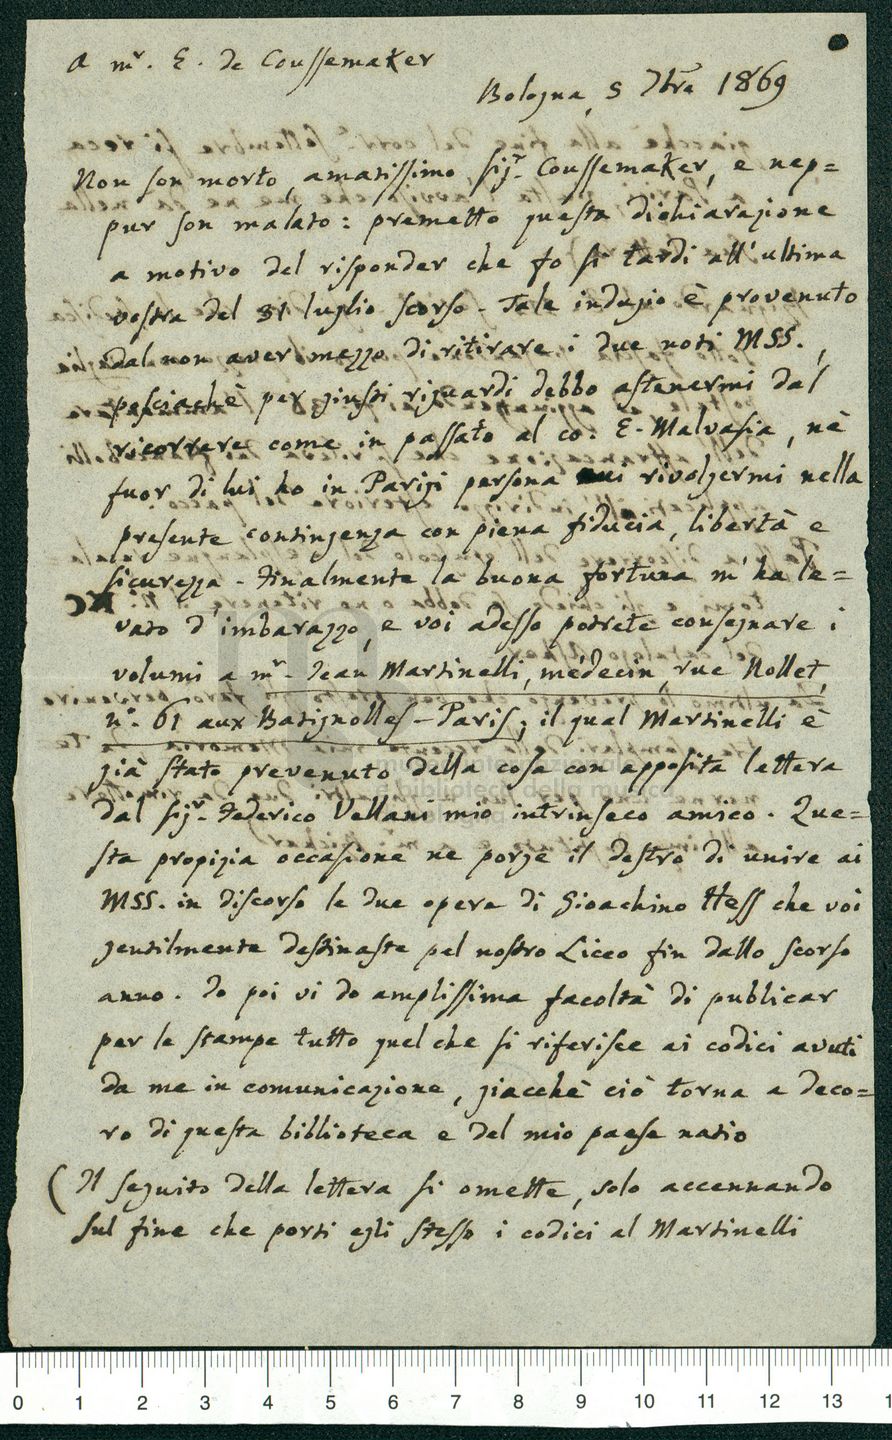 A mr. E. de Coussemaker
Bologna, 5 7bre 1869
Non son morto, amatissimo sigr. Coussemaker, e nep=
pur son malato: premetto questa dichiarazione
a motivo del risponder che fo sì tardi all'ultima
vostra del 31 luglio scorso. Tale indugio è provenuto
dal non aver mezzo di ritirare i due noti MSS.,
posciachè per giusti riguardi debbo astenermi dal
ricorrere come in passato al co: E. Malvasia, nè
fuor di lui ho in Parigi persona cui rivolgermi nella
presente contingenza con piena fiducia, libertà e
sicurezza. Finalmente la buona fortuna m'ha le=
vato d'imbarazzo, e voi adesso potrete consegnare i
volumi a mr. Jean Martinelli, médecin, rue Nollet,
n.º 61 aux Batignolles-Paris; il qual Martinelli è
già stato prevenuto della cosa con apposita lettera
dal sigr. Federico Vellani mio intrinseco amico. Que=
sta propizia occasione ne porge il destro di unire ai
MSS. in discorso le due opere di Gioachino Hess che voi
gentilmente destinaste pel nostro Liceo fin dallo scorso
anno. Io poi vi do amplissima facoltà di publicar
per le stampe tutto quel che si riferisce ai codici avuti
da me in comunicazione, giacchè ciò torna a deco=
ro di questa biblioteca e del mio paese natio
(Il seguito della lettera si omette, solo accennando
sul fine che porti egli stesso i codici al Martinelli
0 1 2 3 4 5 6 7 8 9 10 11 12 13